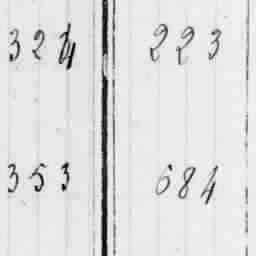 324 223
353 684